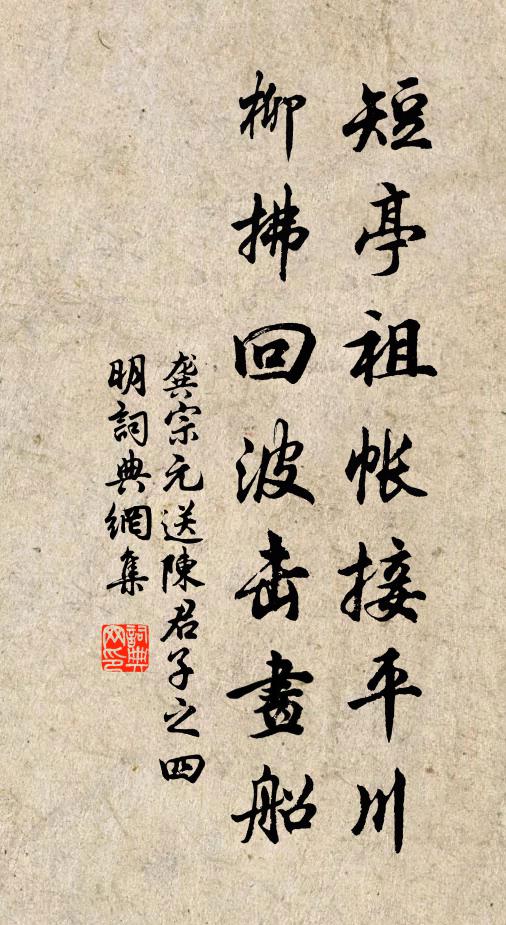 短亭祖帐接平川
柳拂回波击畫船
龚宗元送陳君子之四
明詞典網集
詞典网印